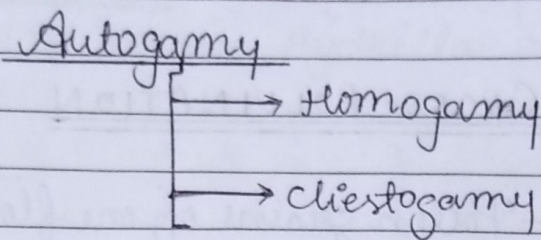 Autogamy
Homogamy
Cliestogamy